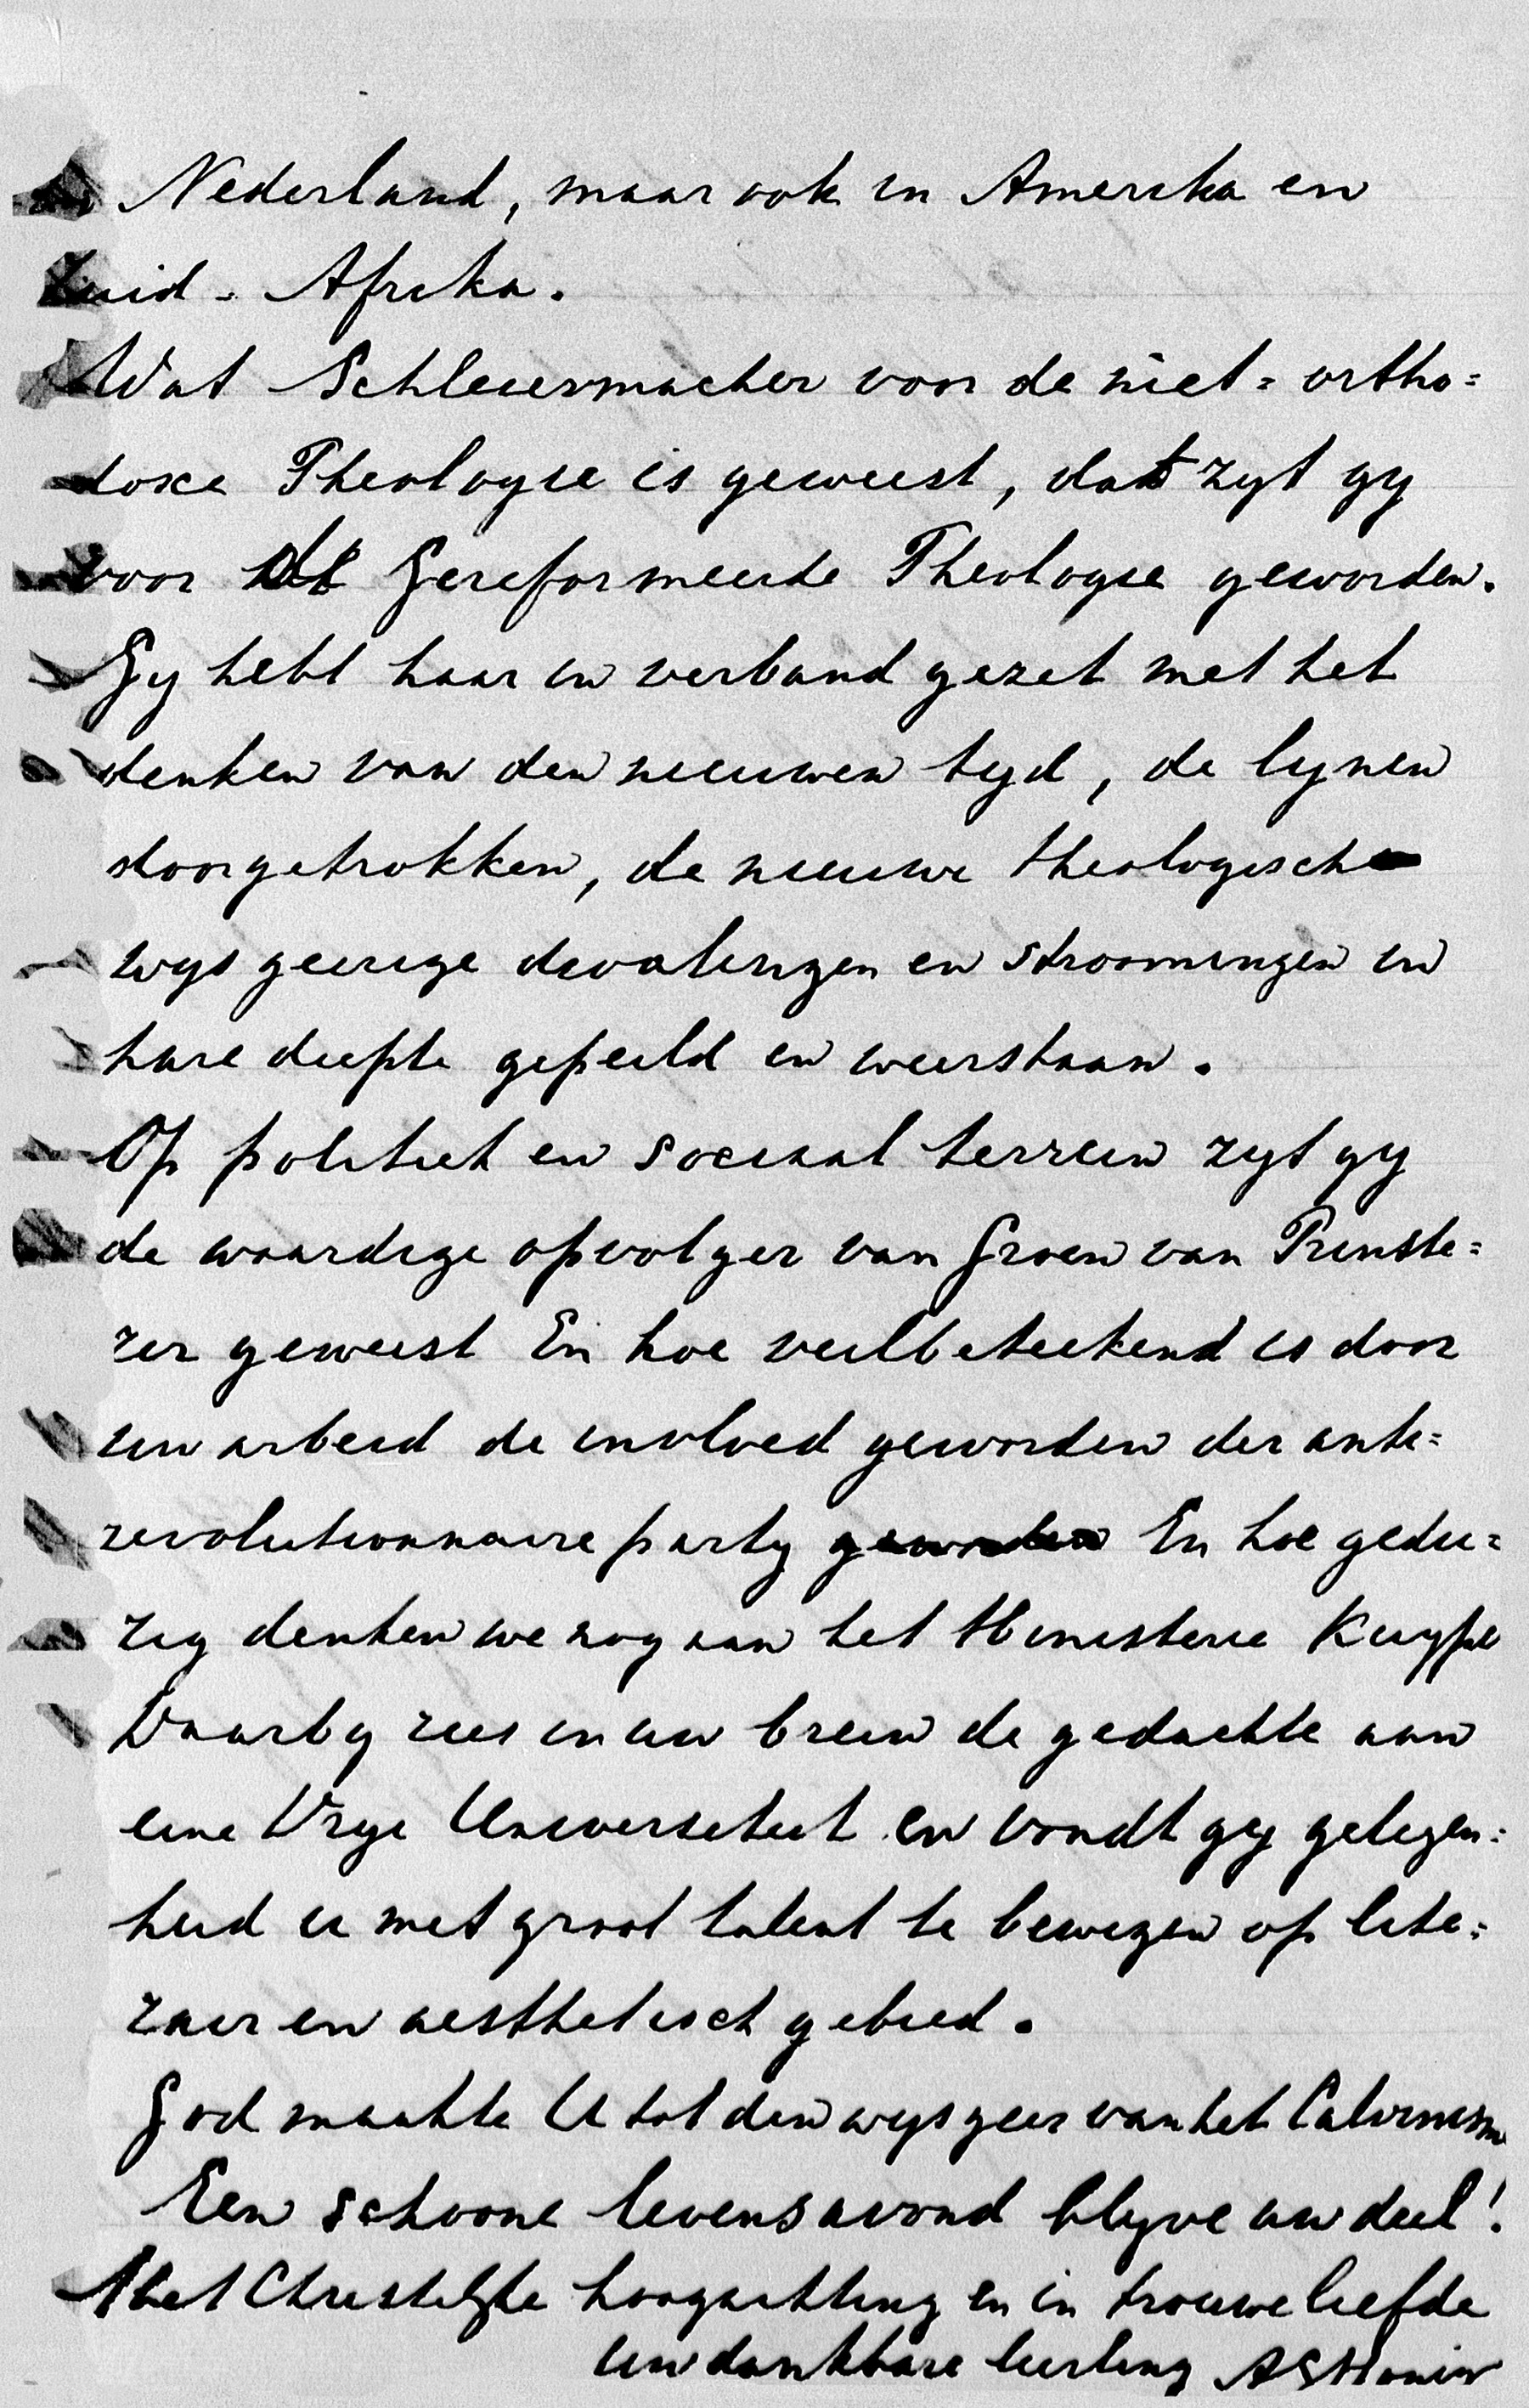 in Nederland, maar ook in Amerika en
Zuid-Afrika.
Wat Schleiermacher voor de niet=ortho=
doxe Theologie is geweest, dat zyt gy
voor de Gereformeerde Theologie geworden.
Gy hebt haar in verband gezet met het
denken van den nieuwen tyd, de lynen
doorgetrokken, de nieuwe theologisch
wysgeerige dwalingen en stroomingen in
hare diepte gepeild en weerstaan.
Op politiek en sociaal terrein zyt gy
de waardige opvolger van Groen van Prinste=
rer geweest En hoe veelbeteekend is door
uw arbeid de invloed geworden der anti=
revolutionnaire party En hoe gedu=
rig denken we nog aan het Ministerie Kuype
Daarby rees in uw brein de gedachte aan
eene Vrye Universiteit en vondt gy gelegen=
heid u met groot talent te bewegen op lite=
rair en aesthetisch gebied.
God maakte U tot den wysgeer van het Calvinism
Een schoone levensavond blyve uw deel!
Met Christelyke hoogachting en in trouwe liefde
Uw dankbare leerling